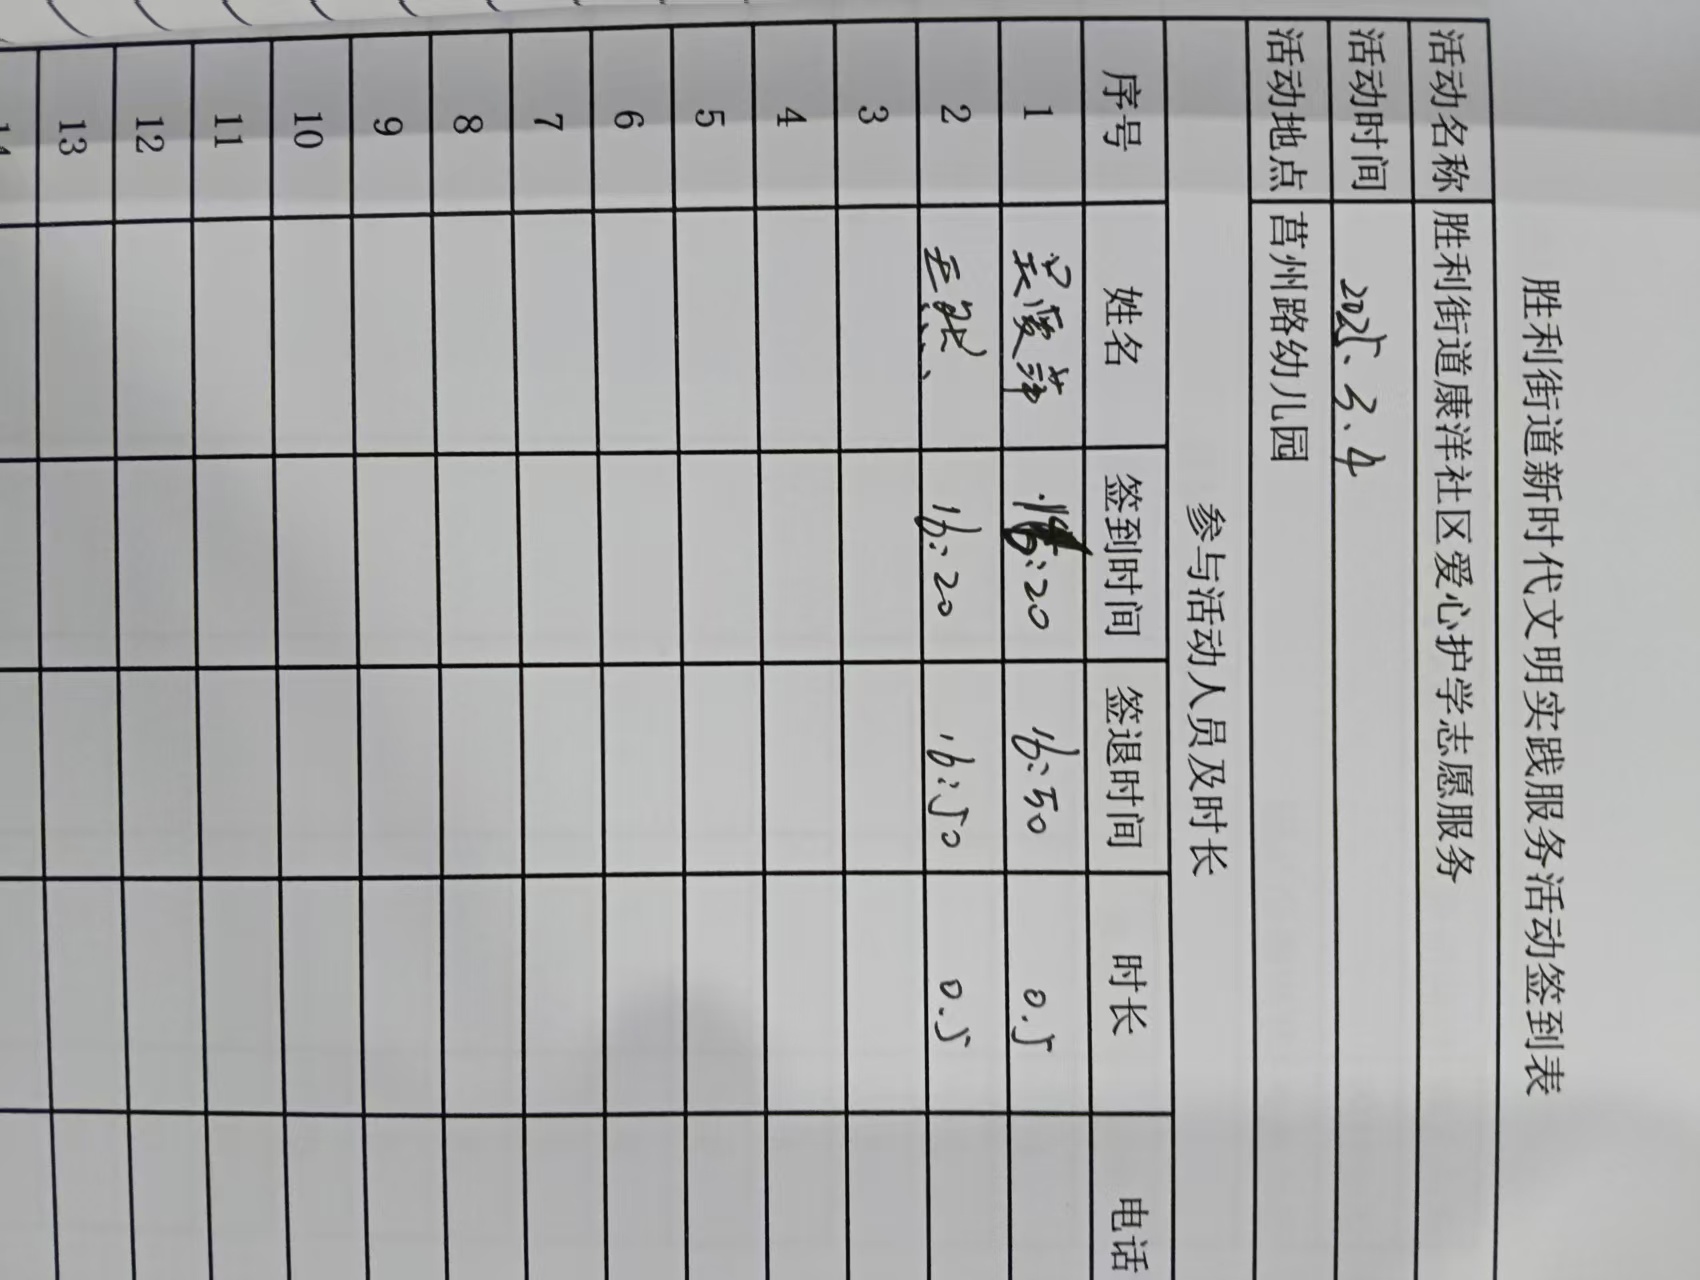 胜利街道新时代文明实践服务活动签到表
活动名称 胜利街道康洋社区爱心护学志愿服务
活动时间 2025.3.4
活动地点 莒州路幼儿园
参与活动人员及时长
序号 姓名 签到时间 签退时间 时长 电话
1 吴爱萍 16:20 16:50 0.5
2 王燕 16:20 16:50 0.5
3
4
5
6
7
8
9
10
11
12
13
14